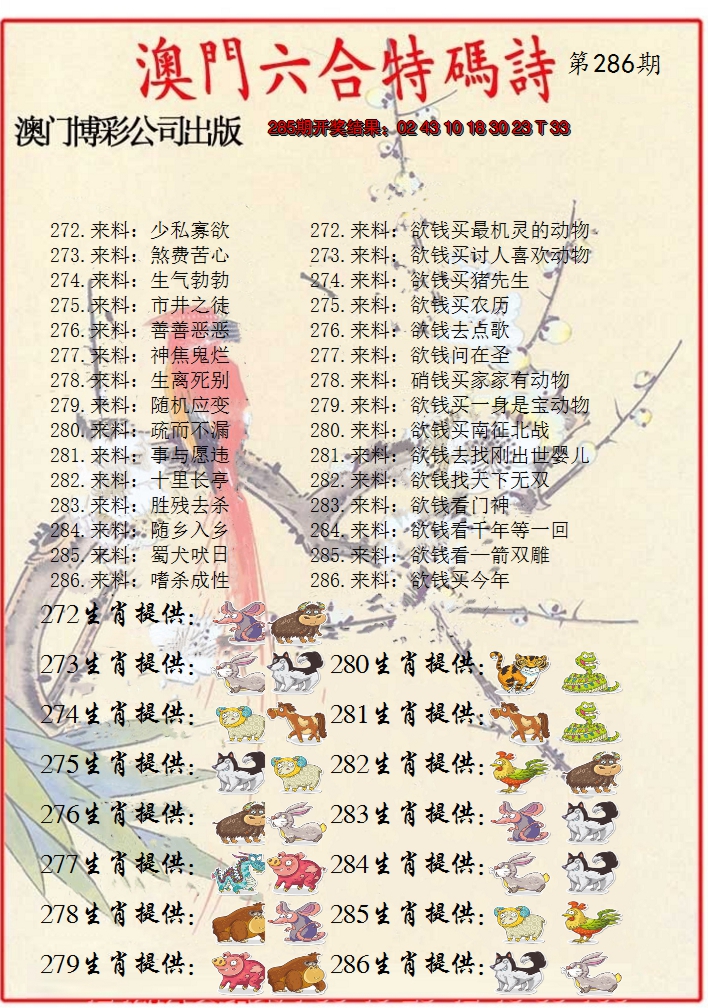 澳門六合特碼詩 第286期
澳门博彩公司出版 285期开奖结果：02 43 10 18 30 23 T 33
272.来料：少私寡欲 272.来料：欲钱买最机灵的动物
273.来料：煞费苦心 273.来料：欲钱买讨人喜欢动物
274.来料：生气勃勃 274.来料：欲钱买猪先生
275.来料：市井之徒 275.来料：欲钱买农历
276.来料：善善恶恶 276.来料：欲钱去点歌
277.来料：神焦鬼烂 277.来料：欲钱问在圣
278.来料：生离死别 278.来料：硝钱买家家有动物
279.来料：随机应变 279.来料：欲钱买一身是宝动物
280.来料：疏而不漏 280.来料：欲钱买南征北战
281.来料：事与愿违 281.来料：欲钱去找刚出世婴儿
282.来料：十里长亭 282.来料：欲钱找天下无双
283.来料：胜残去杀 283.来料：欲钱看门神
284.来料：随乡入乡 284.来料：欲钱看千年等一回
285.来料：蜀犬吠日 285.来料：欲钱看一箭双雕
286.来料：嗜杀成性 286.来料：欲钱买今年
272生肖提供：
273生肖提供： 280生肖提供：
274生肖提供： 281生肖提供：
275生肖提供： 282生肖提供：
276生肖提供： 283生肖提供：
277生肖提供： 284生肖提供：
278生肖提供： 285生肖提供：
279生肖提供： 286生肖提供：